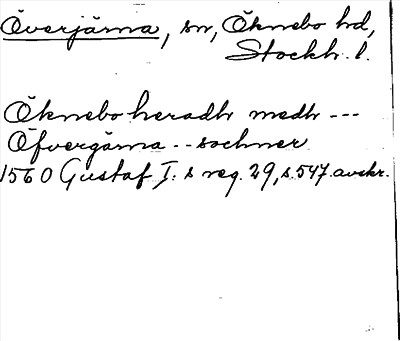 Överjärna, sn, Öknebo hd,
Stockh. l.
Öknebo heradh medh ---
Öfvergärna -- sochner
1560 Gustaf I: s reg. 29, s. 547. avskr.